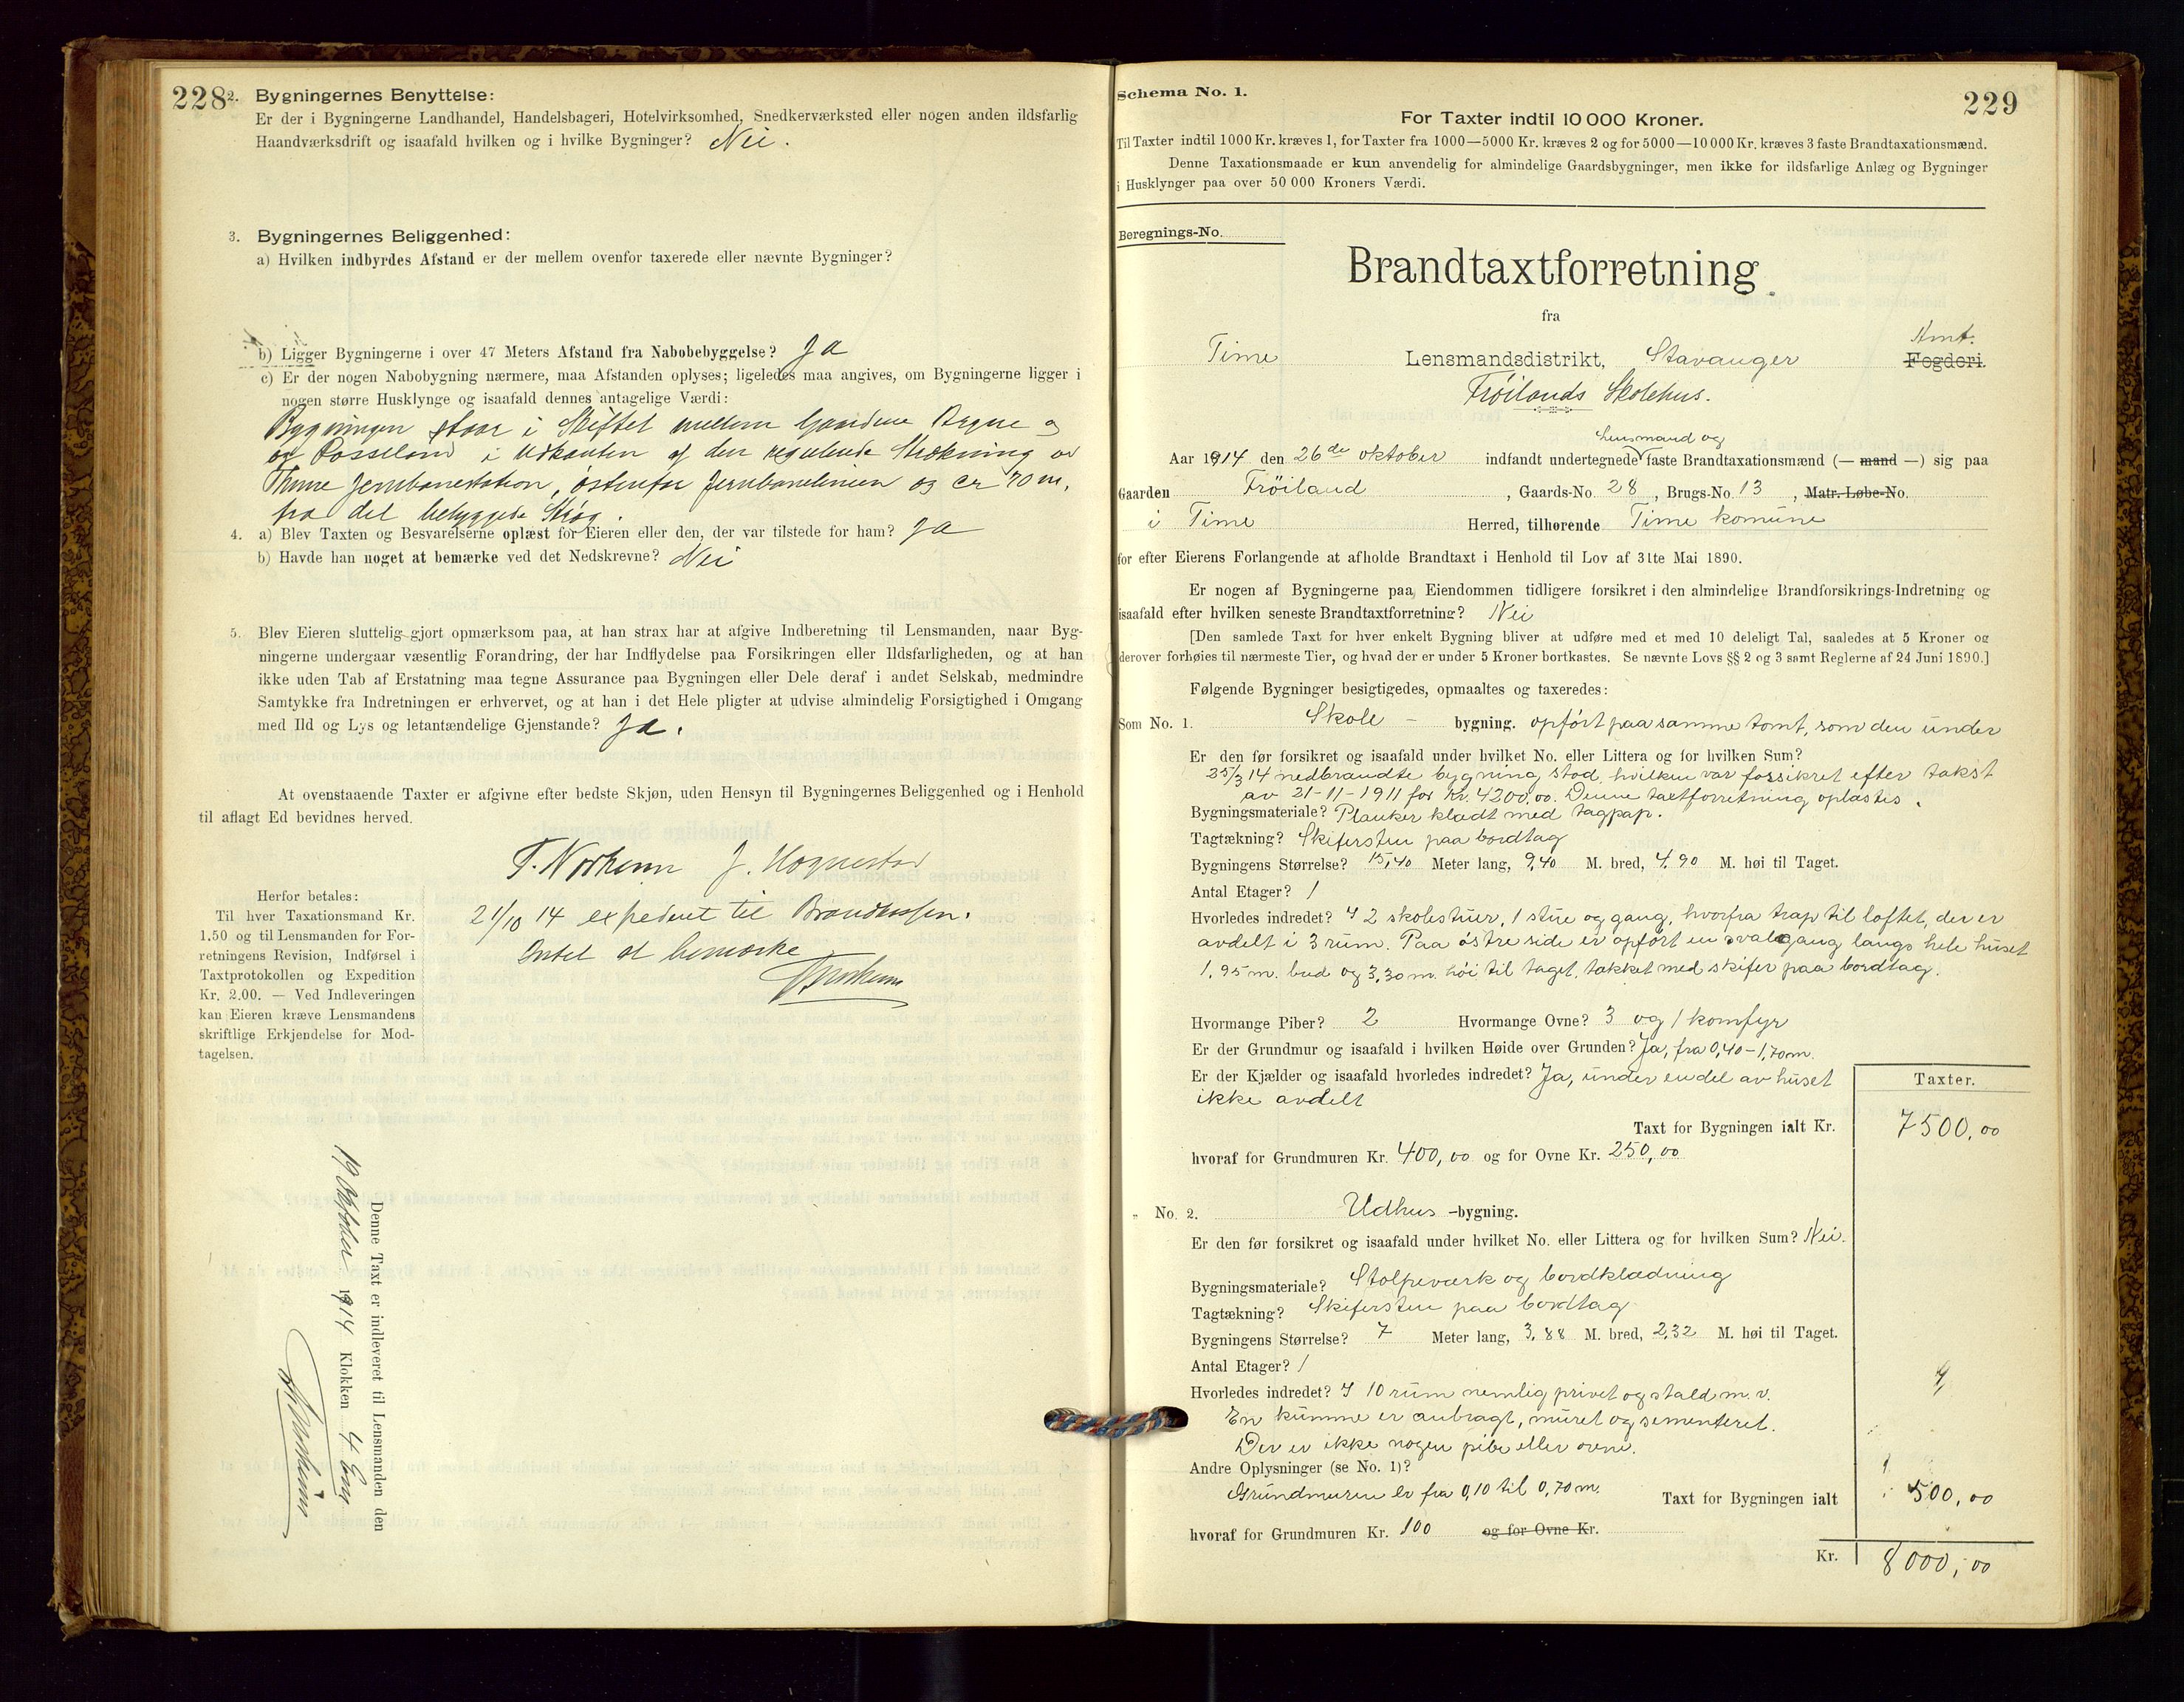 228
2. Bygningernes Benyttelse:
Er der i Bygningerne Landhandel, Handelsbageri, Hotelvirksomhed, Snedkerværksted eller nogen anden ildsfarlig
Haandværksdrift og isaafald hvilken og i hvilke Bygninger? Nei.
3. Bygningernes Beliggenhed:
a) Hvilken indbyrdes Afstand er der mellem ovenfor taxerede eller nævnte Bygninger?
b) Ligger Bygningerne i over 47 Meters Afstand fra Nabobebyggelse? Ja
c) Er der nogen Nabobygning nærmere, maa Afstanden oplyses; ligeledes maa angives, om Bygningerne ligger i
nogen større Husklynge og isaafald dennes antagelige Værdi:
Bygningen staar i Skiftet mellem Gaardene og
og Rosseland i Udkanten af den regulerede Strækning ved
Thime Jernbanestation, østenfor Jernbanelinien og cr 70 m.
fra det bebyggede Strøg.
4. a) Blev Taxten og Besvarelserne oplæst for Eieren eller den, der var tilstede for ham? Ja
b) Havde han noget at bemærke ved det Nedskrevne? Nei
5. Blev Eieren sluttelig gjort opmærksom paa, at han strax har at afgive Indberetning til Lensmanden, naar Byg-
ningerne undergaar væsentlig Forandring, der har Indflydelse paa Forsikringen eller Ildsfarligheden, og at han
ikke uden Tab af Erstatning maa tegne Assurance paa Bygningen eller Dele deraf i andet Selskab, medmindre
Samtykke fra Indretningen er erhvervet, og at han i det Hele pligter at udvise almindelig Forsigtighed i Omgang
med Ild og Lys og letantændelige Gjenstande? Ja.
At ovenstaaende Taxter er afgivne efter bedste Skjøn, uden Hensyn til Bygningernes Beliggenhed og i Henhold
til aflagt Ed bevidnes herved.
T. Norheim J. Hognestad
21/10 14 expederet til Brandkassen.
Intet at bemærke
Norheim
Herfor betales:
Til hver Taxationsmand Kr.
1.50 og til Lensmanden for For-
retningens Revision, Indførsel i
Taxtprotokollen og Expedition
Kr. 2.00. — Ved Indleveringen
kan Eieren kræve Lensmandens
skriftlige Erkjendelse for Mod-
tagelsen.
Denne Taxt er indleveret til Lensmanden den
19 Oktober 1914 Klokken 4 Em
Norheim
Schema No. 1.
229
For Taxter indtil 10 000 Kroner.
Til Taxter indtil 1000 Kr. kræves 1, for Taxter fra 1000—5000 Kr. kræves 2 og for 5000—10 000 Kr. kræves 3 faste Brandtaxationsmænd.
Denne Taxationsmaade er kun anvendelig for almindelige Gaardsbygninger, men ikke for ildsfarlige Anlæg og Bygninger
i Husklynger paa over 50 000 Kroners Værdi.
Beregnings-No.
Brandtaxtforretning
fra
Amt.
Time Lensmandsdistrikt, Stavanger Fogderi.
Frøilands Skolehus.
lensmand og
Aar 1914 den 26de oktober indfandt undertegnede faste Brandtaxationsmænd (— mand —) sig paa
Gaarden Frøiland, Gaards-No. 28, Brugs-No. 13, Matr.-Løbe-No.
i Time Herred, tilhørende Time komune
for efter Eierens Forlangende at afholde Brandtaxt i Henhold til Lov af 31te Mai 1890.
Er nogen af Bygningerne paa Eiendommen tidligere forsikret i den almindelige Brandforsikrings-Indretning og
isaafald efter hvilken seneste Brandtaxtforretning? Nei
[Den samlede Taxt for hver enkelt Bygning bliver at udføre med et med 10 deleligt Tal, saaledes at 5 Kroner og
derover forhøies til nærmeste Tier, og hvad der er under 5 Kroner bortkastes. Se nævnte Lovs §§ 2 og 3 samt Reglerne af 24 Juni 1890.]
Følgende Bygninger besigtigedes, opmaaltes og taxeredes:
Som No. 1. Skole - bygning. opført paa samme tomt, som den under
Er den før forsikret og isaafald under hvilket No. eller Littera og for hvilken Sum?
25/3 14 nedbrændte bygning stod, hvilken var forsikret efter takst
av 21-11-1911 for kr. 4200,00. Denne taxtforretning oplæstes.
Bygningsmateriale? Planker klædt med tagpap.
Tagtækning? Skifersten paa bordtag
Bygningens Størrelse? 15,40 Meter lang, 9,40 M. bred, 4,90 M. høi til Taget.
Antal Etager? 1
Hvorledes indredet? I 2 skolestuer, 1 stue og gang, hvorfra trap til loftet, der er
avdelt i 3 rum. Paa østre side er opført en svalegang langs hele huset
1,95 m. bred og 3,30 m. høi til taget, tækket med skifer paa bordtag.
Hvormange Piber? 2 Hvormange Ovne? 3 og 1 komfyr
Er der Grundmur og isaafald i hvilken Høide over Grunden? Ja, fra 0,40-1,70 m.
Er der Kjælder og isaafald hvorledes indredet? Ja, under en del av huset
ikke avdelt
Taxter.
Taxt for Bygningen ialt Kr. 7500,00
hvoraf for Grundmuren Kr. 400,00 og for Ovne Kr. 250,00
" No. 2. Udhus -bygning.
Er den før forsikret og isaafald under hvilket No. eller Littera og for hvilken Sum? Nei.
Bygningsmateriale? Stolpeværk og bordklædning
Tagtækning? Skifersten paa bordtag
Bygningens Størrelse? 7 Meter lang, 3,88 M. bred, 2,32 M. høi til Taget.
Antal Etager? 1
Hvorledes indredet? I 10 rum nemlig privet og stald m.v.
En kumme er anbragt, muret og sementeret.
Der er ikke nogen pibe eller ovne.
Andre Oplysninger (se No. 1)?
Grundmuren er fra 0,10 til 0,70 m. Taxt for Bygningen ialt 500,00
hvoraf for Grundmuren Kr. 100 og for Ovne Kr.
Kr. 8000,00